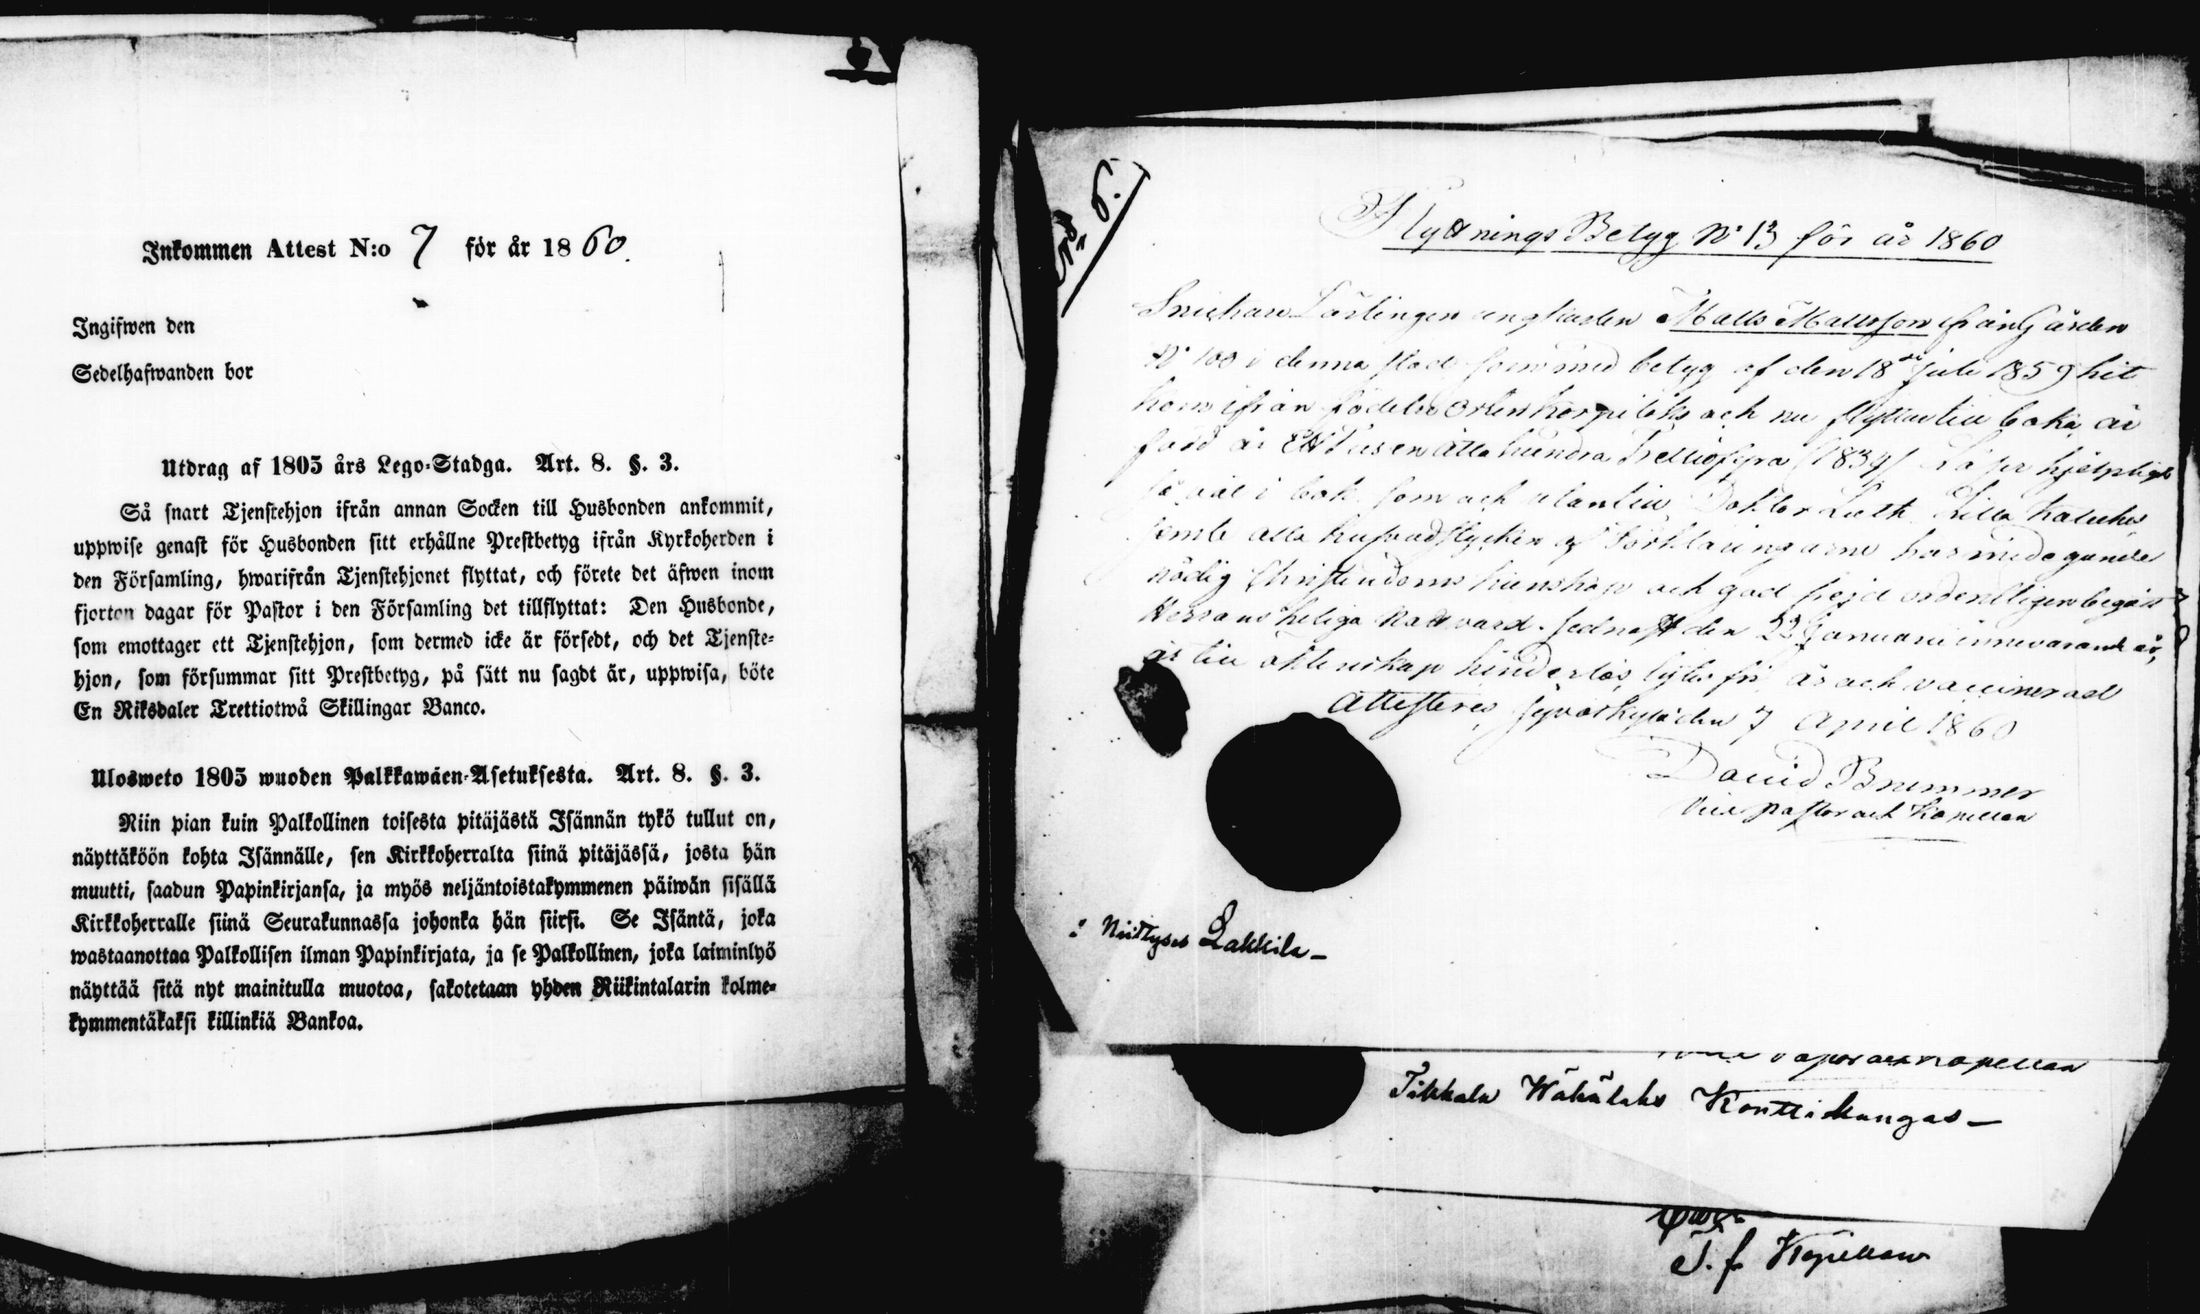 Inkommen Attest N:o 7 för år 1860.
Ingifwen den
Sedelhafwanden bor
Utdrag af 1805 års Lego-Stadga. Art. 8. §. 3.
Så snart Tjenstehjon ifrån annan Socken till Husbonden ankommit,
uppwise genast för Husbonden sitt erhållne Prestbetyg ifrån Kyrkoherden i
den Församling, hwarifrån Tjenstehjonet flyttat, och förete det äfwen inom
fjorton dagar för Pastor i den Församling det tillflyttat: Den Husbonde,
som emottager ett Tjenstehjon, som dermed icke är försedt, och det Tjenste-
hjon, som försummar sitt Prestbetyg, på sätt nu sagdt är, uppwisa, böte
En Riksdaler Trettiotwå Skillingar Banco.
Ulosweto 1805 wuoden Palkkawäen-Asetuksesta. Art. 8. §. 3.
Niin pian kuin Palkollinen toisesta pitäjästä Isännän tykö tullut on,
näyttäköön kohta Isännälle, sen Kirkkoherralta siinä pitäjässä, josta hän
muutti, saadun Papinkirjansa, ja myös neljäntoistakymmenen päiwän sisällä
Kirkkoherralle siinä Seurakunnassa johonka hän siirsi. Se Isäntä, joka
wastaanottaa Palkollisen ilman Papinkirjata, ja se Palkollinen, joka laiminlyö
näyttää sitä nyt mainitulla muotoa, sakotetaan yhden Riikintalarin kolme-
kymmentäkaksi killinkiä Bankoa.
No 6.
Flyttnings Betyg No 13 för år 1860
Snickare Lärlingen ynglingen Matts Mattsson ifrån Gården
No 100 i denna stad som med betyg af den 18de Juli 1859 hit
kom ifrån födelse Orten Korpilaks och nu flyttar till baka är
född år Ett Tusen Åtta hundra Trettiofyra (1834) Läser hjelpligt
så väl i bok som och utantill Doktor Luth. Lilla Kateches
jemte alla hufvudstycken af Förklaringarne har nödig
nödig Christendoms kunskap och god frejd ordentligen begått
Herrans heliga Nattvard sednast den 22 Januarii innevarande år,
är till äktenskap hinderlös, lytes fri är och vaccinerad
Attesteres, Jyväskylä den 7 April 1860
David Brummer
Vice pastor och Kapellan
Niittyses Lakkila –
Tikkala Wähälaks Konttikangas –
T. f. Kapellan